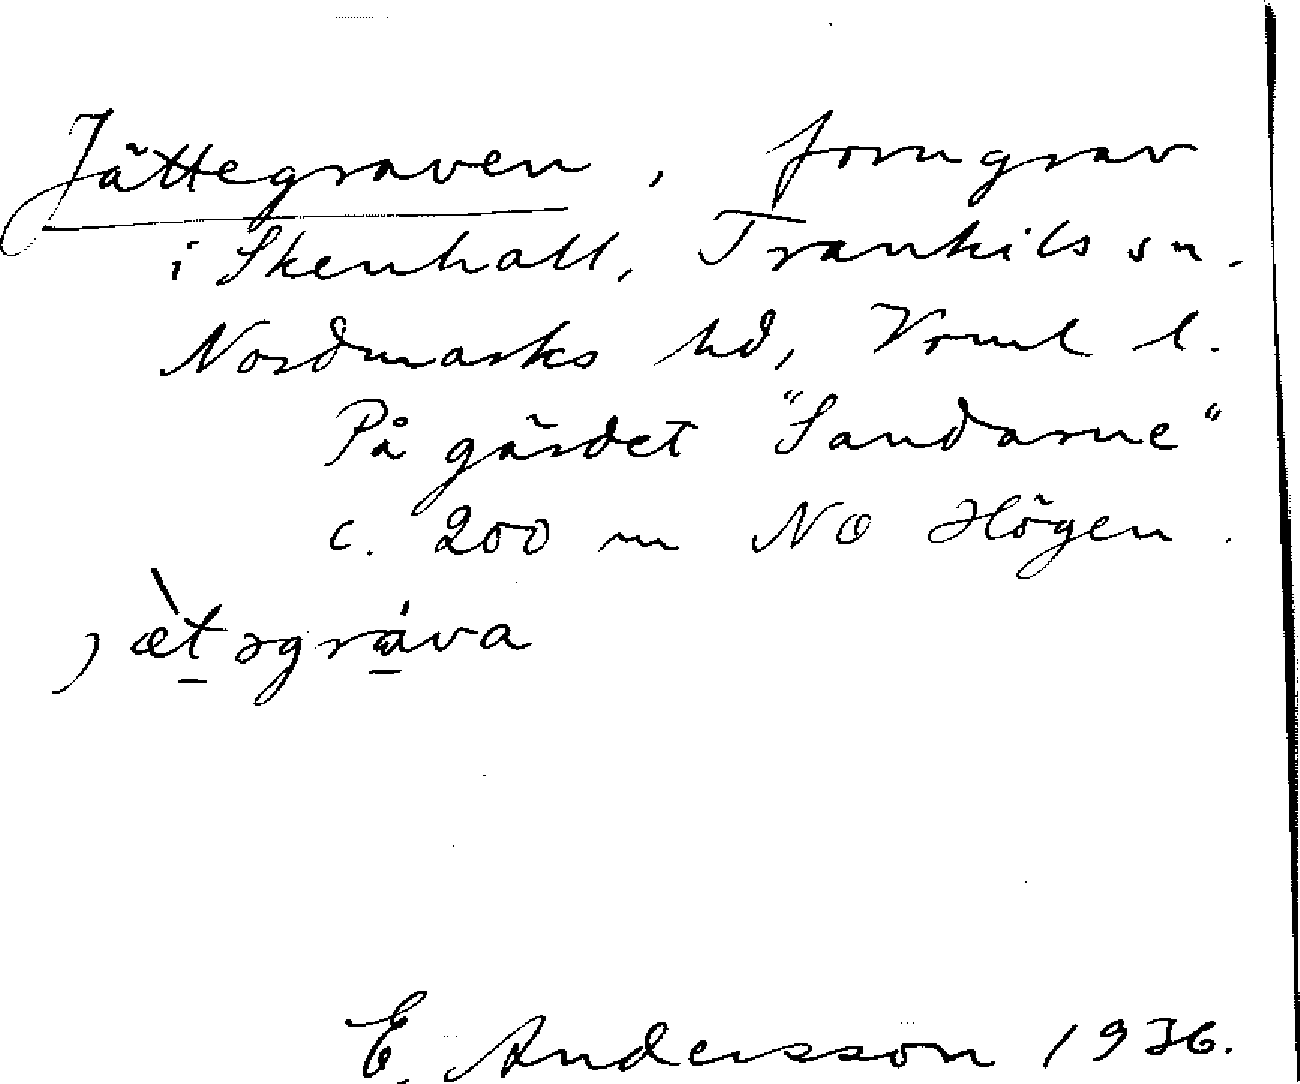 Jättegraven, forngrav
i Skenhall, Trankils sn.
Nordmarks hd, Vrml l.
På gärdet "Sandarne"
c. 200 m NO Högen.
jæ̀t̲əgrá̲va
E. Andersson 1936.